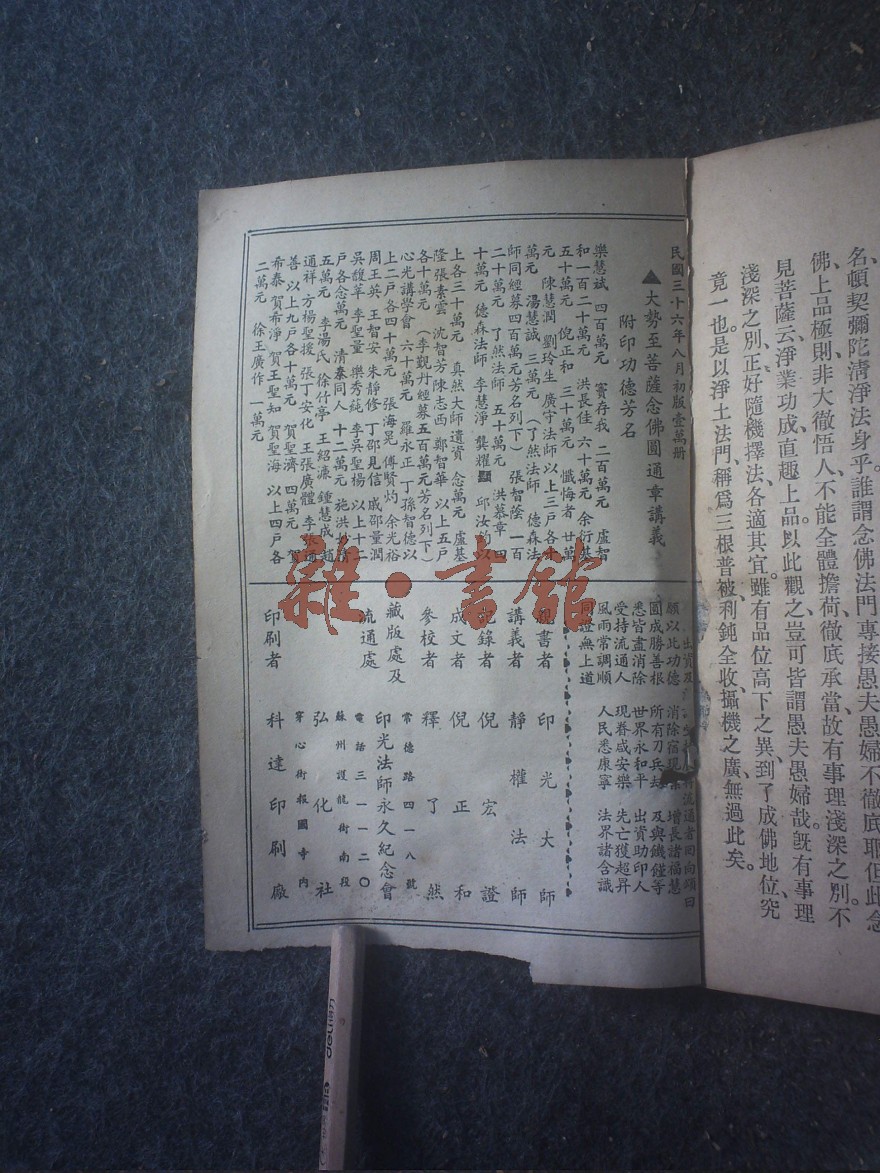 名、頓契彌陀清淨法身乎。誰謂念佛法門、專接愚夫愚婦、不徹底耶。但此念
佛、上品極則、非大徹悟人、不能全體擔荷、徹底承當。故有事理淺深之別。不
見菩薩云、淨業功成、直趣上品。以此觀之、豈可皆謂愚夫愚婦哉。旣有事理
淺深之別、正好隨機擇法、各適其宜。雖有品位高下之異、到了成佛地位、究
竟一也。是以淨土法門、稱爲三根普被、利鈍全收、攝機之廣、無過此矣。
民國三十六年八月初版壹萬册
▲大勢至菩薩念佛圓通章講義
附印功德芳名
樂慧斌 四百萬元 竇存我 二百萬元 盧智
和一百二十萬元 洪長佳 六十萬元 余衍英
五十萬元 倪正和 三十萬元 懺悔者 廿萬
元 陳慧潤 劉玲生 廣守法師 以上三戶各十
萬元 湯慧誠 三萬元 (了然法師 德森法
師同經募四百萬元芳名列下) 張智蔭 一百
二十萬元 了然法師 五十萬元 洪慕章 四
十萬元 德森法師 李慧淨 龔耀 邱汝鈞以
上各三十萬元 真然大師遺資 念萬元 盧基
隆 張素雲 沈智芳 陳志西 鄭智華 以上五戶
各十萬元 (李覲廾經募五百萬元芳名列下)
心光講學會 六十萬元 羅永正 丁孫智德以
上二戶各四十萬元 張海晃 傅賢灼 余光裕
周王英 王智安 朱靜修 丁邵見信 戚邵量潤
吳馥華 李聖量 樂秀蒓 李吳聖楊 以上十二
戶各念萬元 清秦同人 十二萬元 施洪妙情
五萬元 李湯氏 徐竹亭 王紹濂 鍾慧成 趙
通祥 方楊聖援 張丁安化 王張廣體 李 通
善 以上九戶各十萬元 賀聖濟 四萬元 賀
希泰 賀希淨 賀王聖知 賀聖海 以上四戶各
二萬元 徐王廣作 一萬元
流通者回向頌曰
願以此功德 消除宿現業 增長諸福慧
圓成勝善根 所有刀兵劫 及與饑饉等
悉皆盡消除 世界永和平 出資助印人
受持流通人 現眷咸安樂 先亡獲超昇
風雨常調順 人民悉康寧 法界諸含識
同證無上道
書者 印光大師
講義者 靜權法師
錄者 倪宏證
成文者 倪正和
參校者 釋了然
藏版處及
流通處
常德路四一八號
印光法師永久紀念會
電話三一一二〇
蘇州護龍街南段
弘化社
穿心街報國寺內
印刷者 科達印刷廠
雜·書館
deli得力